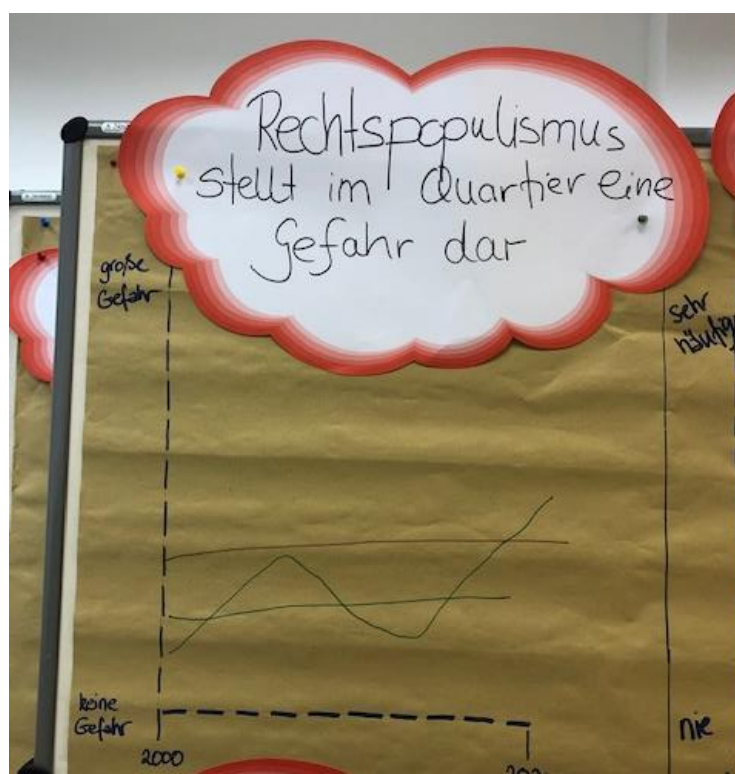 Rechtspopulismus
stellt im Quartier eine
Gefahr dar
große
Gefahr
sehr
keine
Gefahr
nie
2000